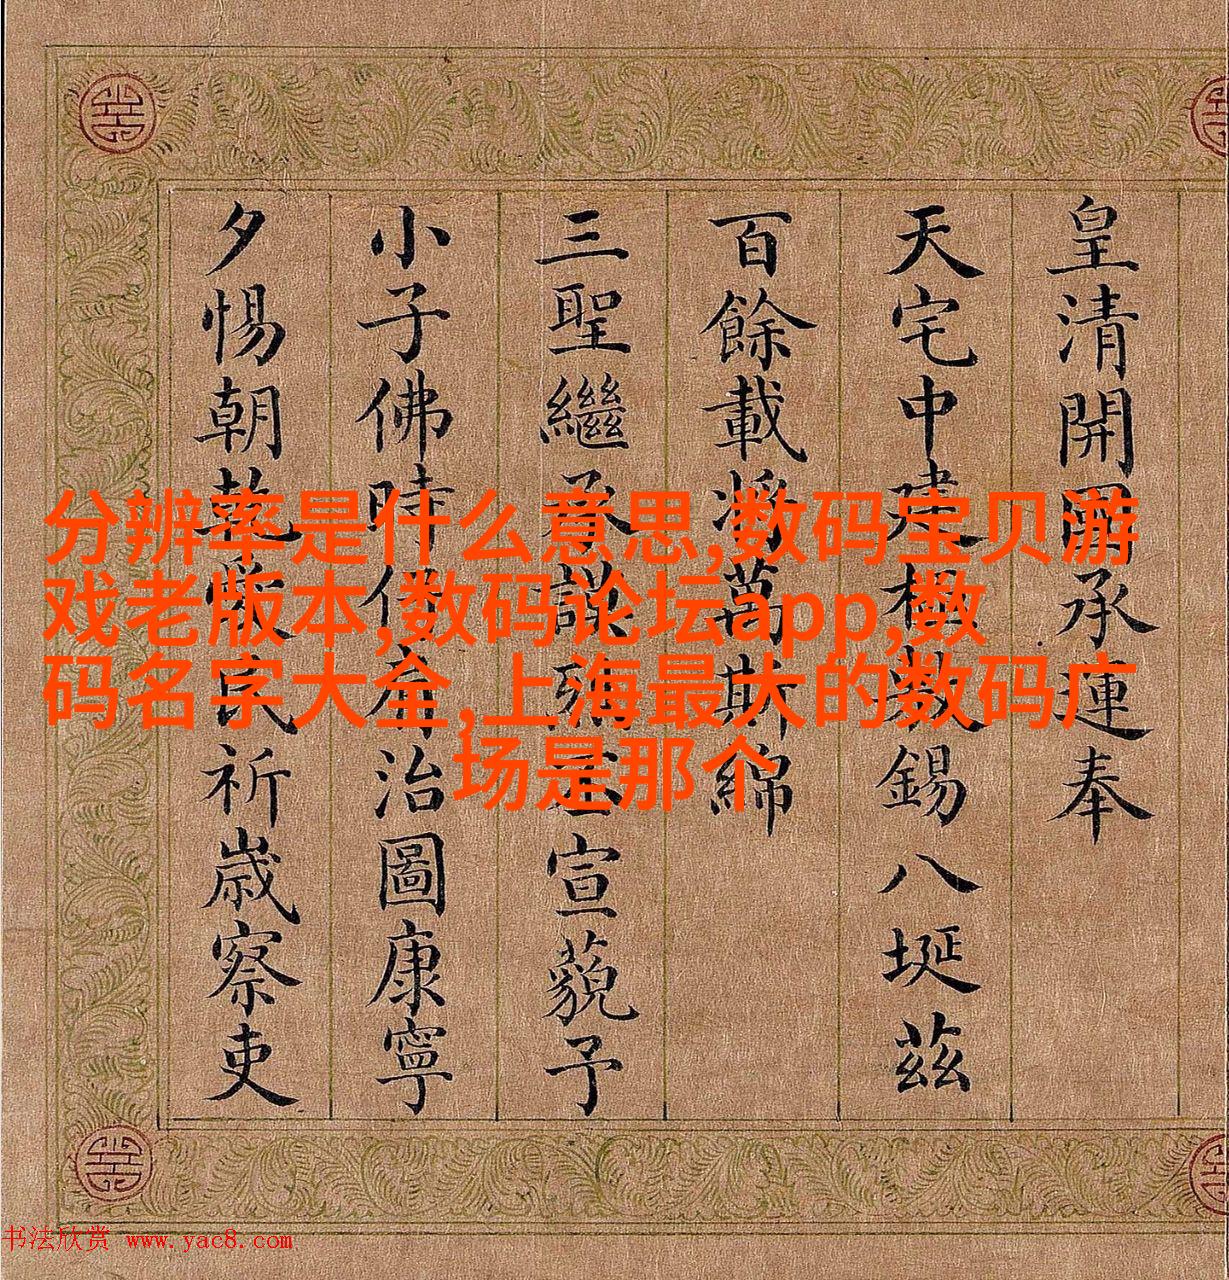 皇清開國承運奉
天宅中建極敷錫八埏茲
百餘載將萬斯綿
三聖繼承謨烈丕宣藐予
小子佛時仔肩治圖康寧
夕惕朝乾愛民祈歲察吏
分辨率是什么意思,数码宝贝游
戏老版本,数码论坛app,数
码名字大全,上海最大的数码广
场是那个
书法欣赏 www.yac8.com